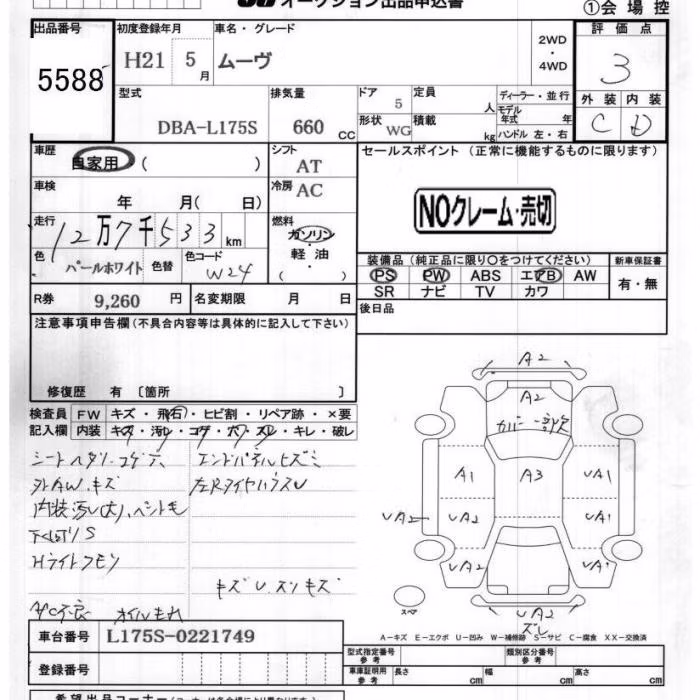 オークション出品申込書
①会場控
出品番号
5588
初度登録年月
H21 5月
車名・グレード
ムーヴ
2WD
・
4WD
評価点
3
型式
DBA-L175S
排気量
660 CC
ドア 5
形状 WG
定員 人
積載 kg
ディーラー・並行
モデル年式 年
ハンドル 左・右
外装 内装
C D
車歴
自家用 ( )
シフト AT
車検
年 月( 日)
冷房 AC
走行
12万7千533km
燃料
ガソリン
・
軽油
( ・ )
色
パールホワイト
色替
色コード
W24
セールスポイント (正常に機能するものに限ります)
NOクレーム・売切
装備品 (純正品に限り○をつけてください)
PS PW ABS エアB AW
SR ナビ TV カワ
新車保証書
有・無
R券 9,260 円
名変期限 月 日
後日品
注意事項申告欄(不具合内容等は具体的に記入して下さい)
修復歴 有 〔箇所 〕
検査員記入欄
FW キズ・飛石・ヒビ割・リペア跡・×要
内装 キズ・汚レ・コゲ・穴・スレ・キレ・破レ
シートヘタリ・コゲ穴
外AW.キズ
下回りS
Hライトクモリ
エンドパネルヒズミ
オイルもれ
A2
A2
カバー一部欠
A1
A3
UA1
UA2
UA2
UA1
UA2
UA1
UA2
ズレ
スペア
A-キズ E-エクボ U-凹み W-補修跡 S-サビ C-腐食 XX-交換済
車台番号 L175S-0221749
登録番号
型式指定番号
参考
類別区分番号
参考
車庫証明用
参考
長さ cm
幅 cm
高さ cm